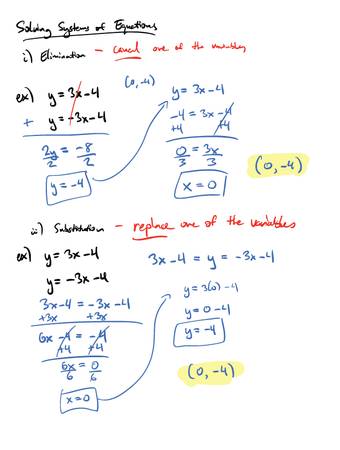 Solving Systems of Equations
i) Elimination - cancel one of the variables
ex) y = 3x - 4
+ y = -3x - 4
2y/2 = -8/2
y = -4
(0, -4)
y = 3x - 4
-4 = 3x - 4
+4 +4
0/3 = 3x/3
x = 0
(0, -4)
ii) Substitution - replace one of the variables
ex) y = 3x - 4
y = -3x - 4
3x - 4 = -3x - 4
+3x +3x
6x - 4 = -4
+4 +4
6x/6 = 0/6
x = 0
3x - 4 = y = -3x - 4
y = 3(0) - 4
y = 0 - 4
y = -4
(0, -4)